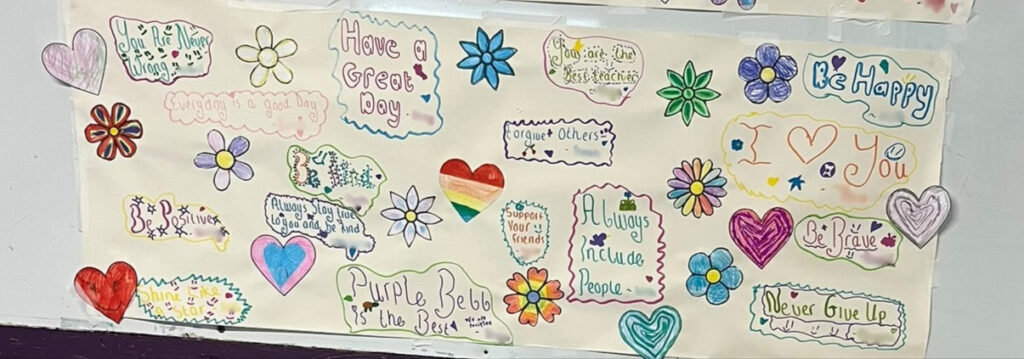 You Are Never
Wrong
Have a
Great
Day
You are the
Best teacher
Be Happy
Everyday is a good Day
Forgive Others
I You
Be Kind
Be Positive
Always Stay true
to you and be kind
Support
Your
friends
Always
Include
People
Be Brave
Shine Like
a Star
Purple Bebb
is the Best
Never Give Up